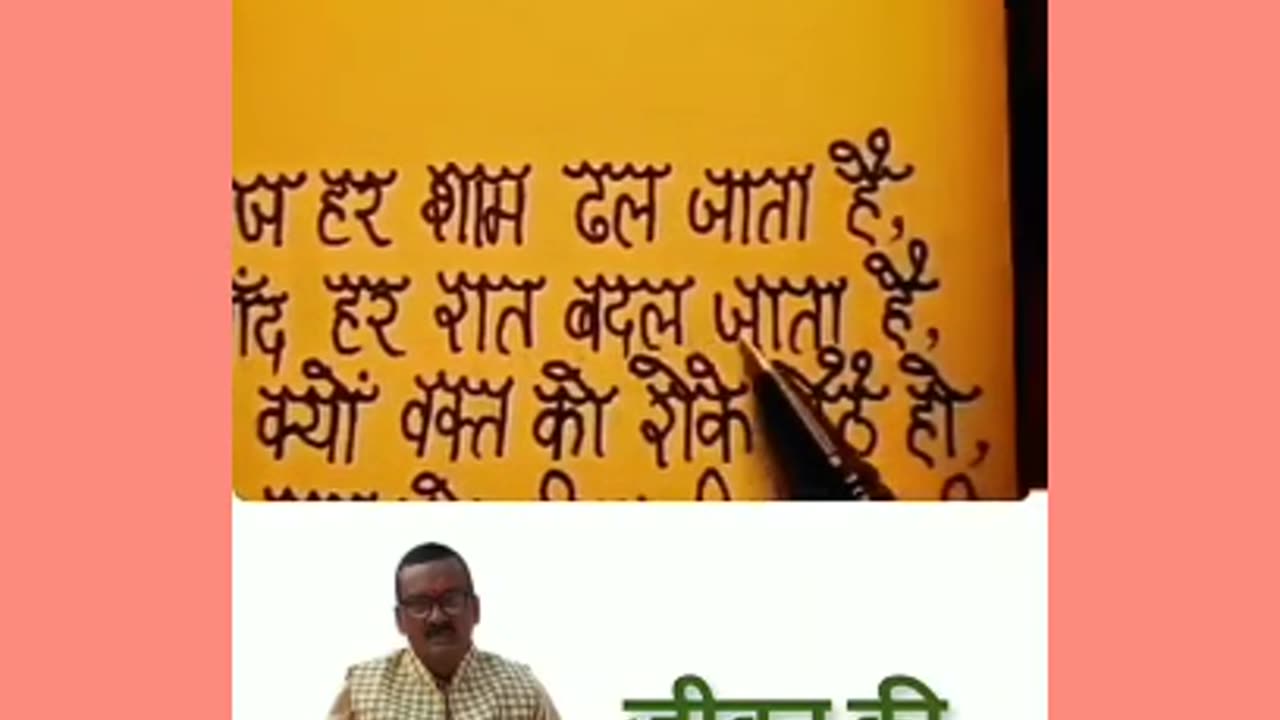 हर शाम ढल जाता है,
हर रात बदल जाता है,
क्यों वक्त को रोके हो,
जीवन की